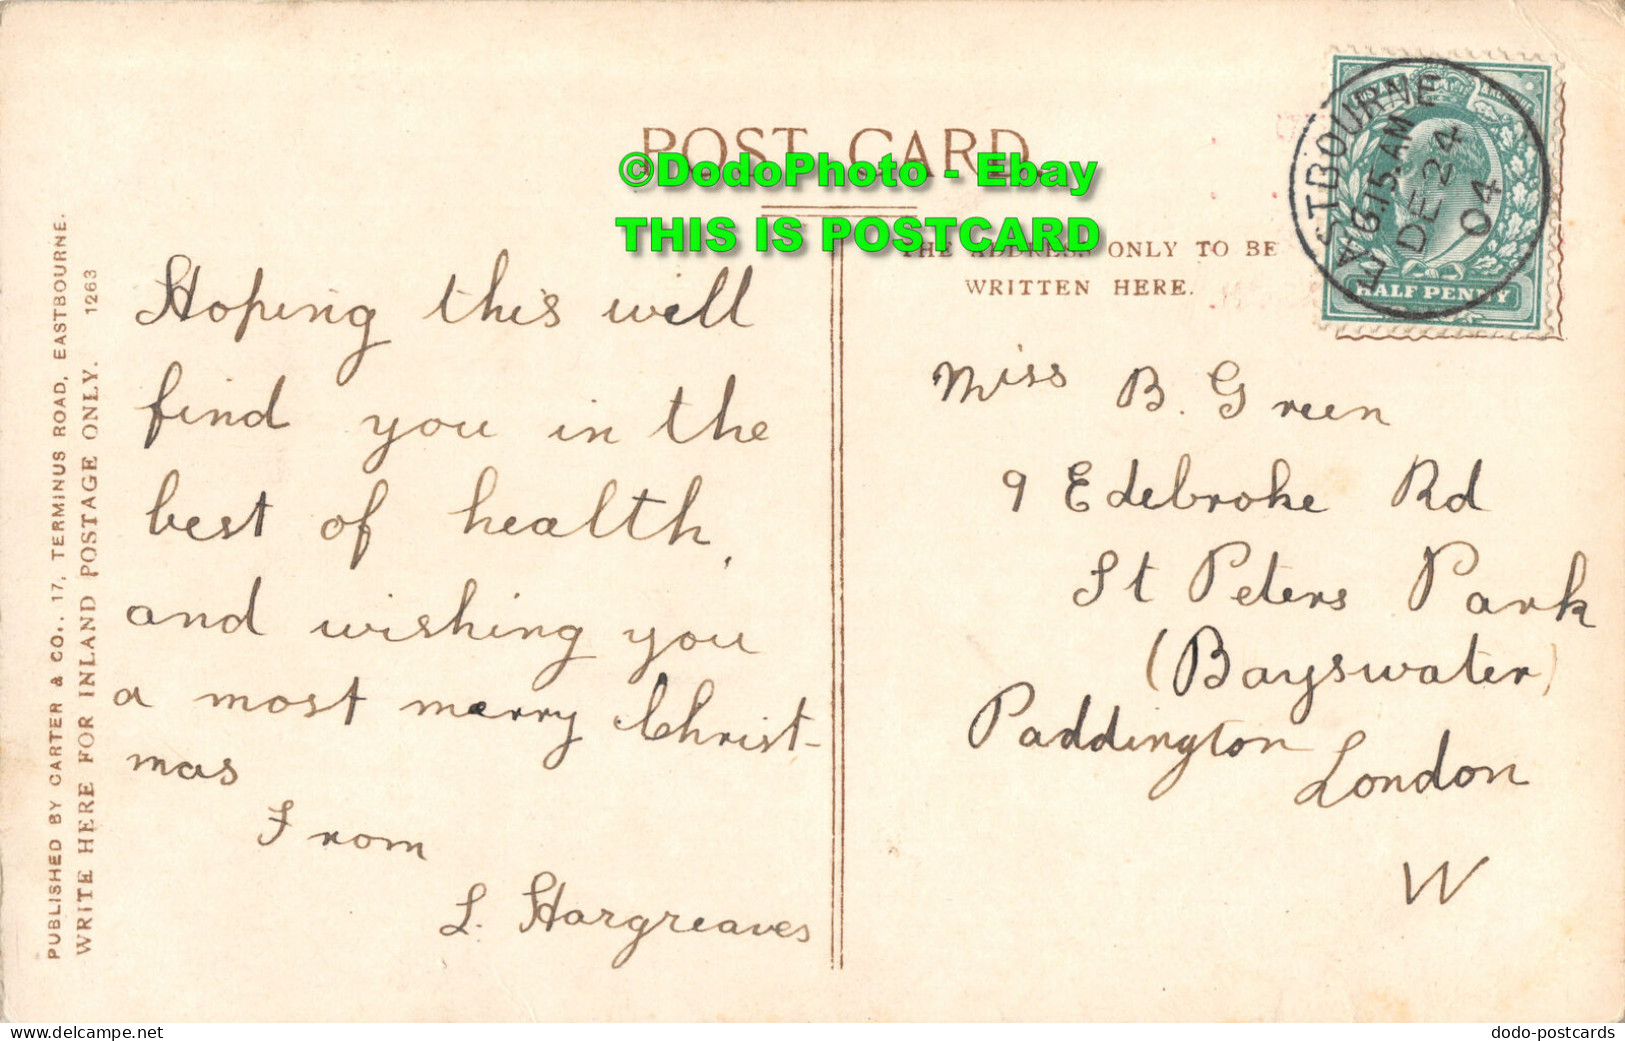 POST CARD.
©DodoPhoto - Ebay
THIS IS POSTCARD
THE ADDRESS ONLY TO BE
WRITTEN HERE.
EASTBOURNE
6.15.AM
DE 24
04
HALF PENNY
PUBLISHED BY CARTER & CO., 17, TERMINUS ROAD, EASTBOURNE.
WRITE HERE FOR INLAND POSTAGE ONLY. 1263
Hoping this will
find you in the
best of health,
and wishing you
a most merry Christ-
mas
From
L. Hargreaves
Miss B. Green
9 Edebroke Rd
St Peters Park
(Bayswater)
Paddington
London
W
www.delcampe.net
dodo-postcards